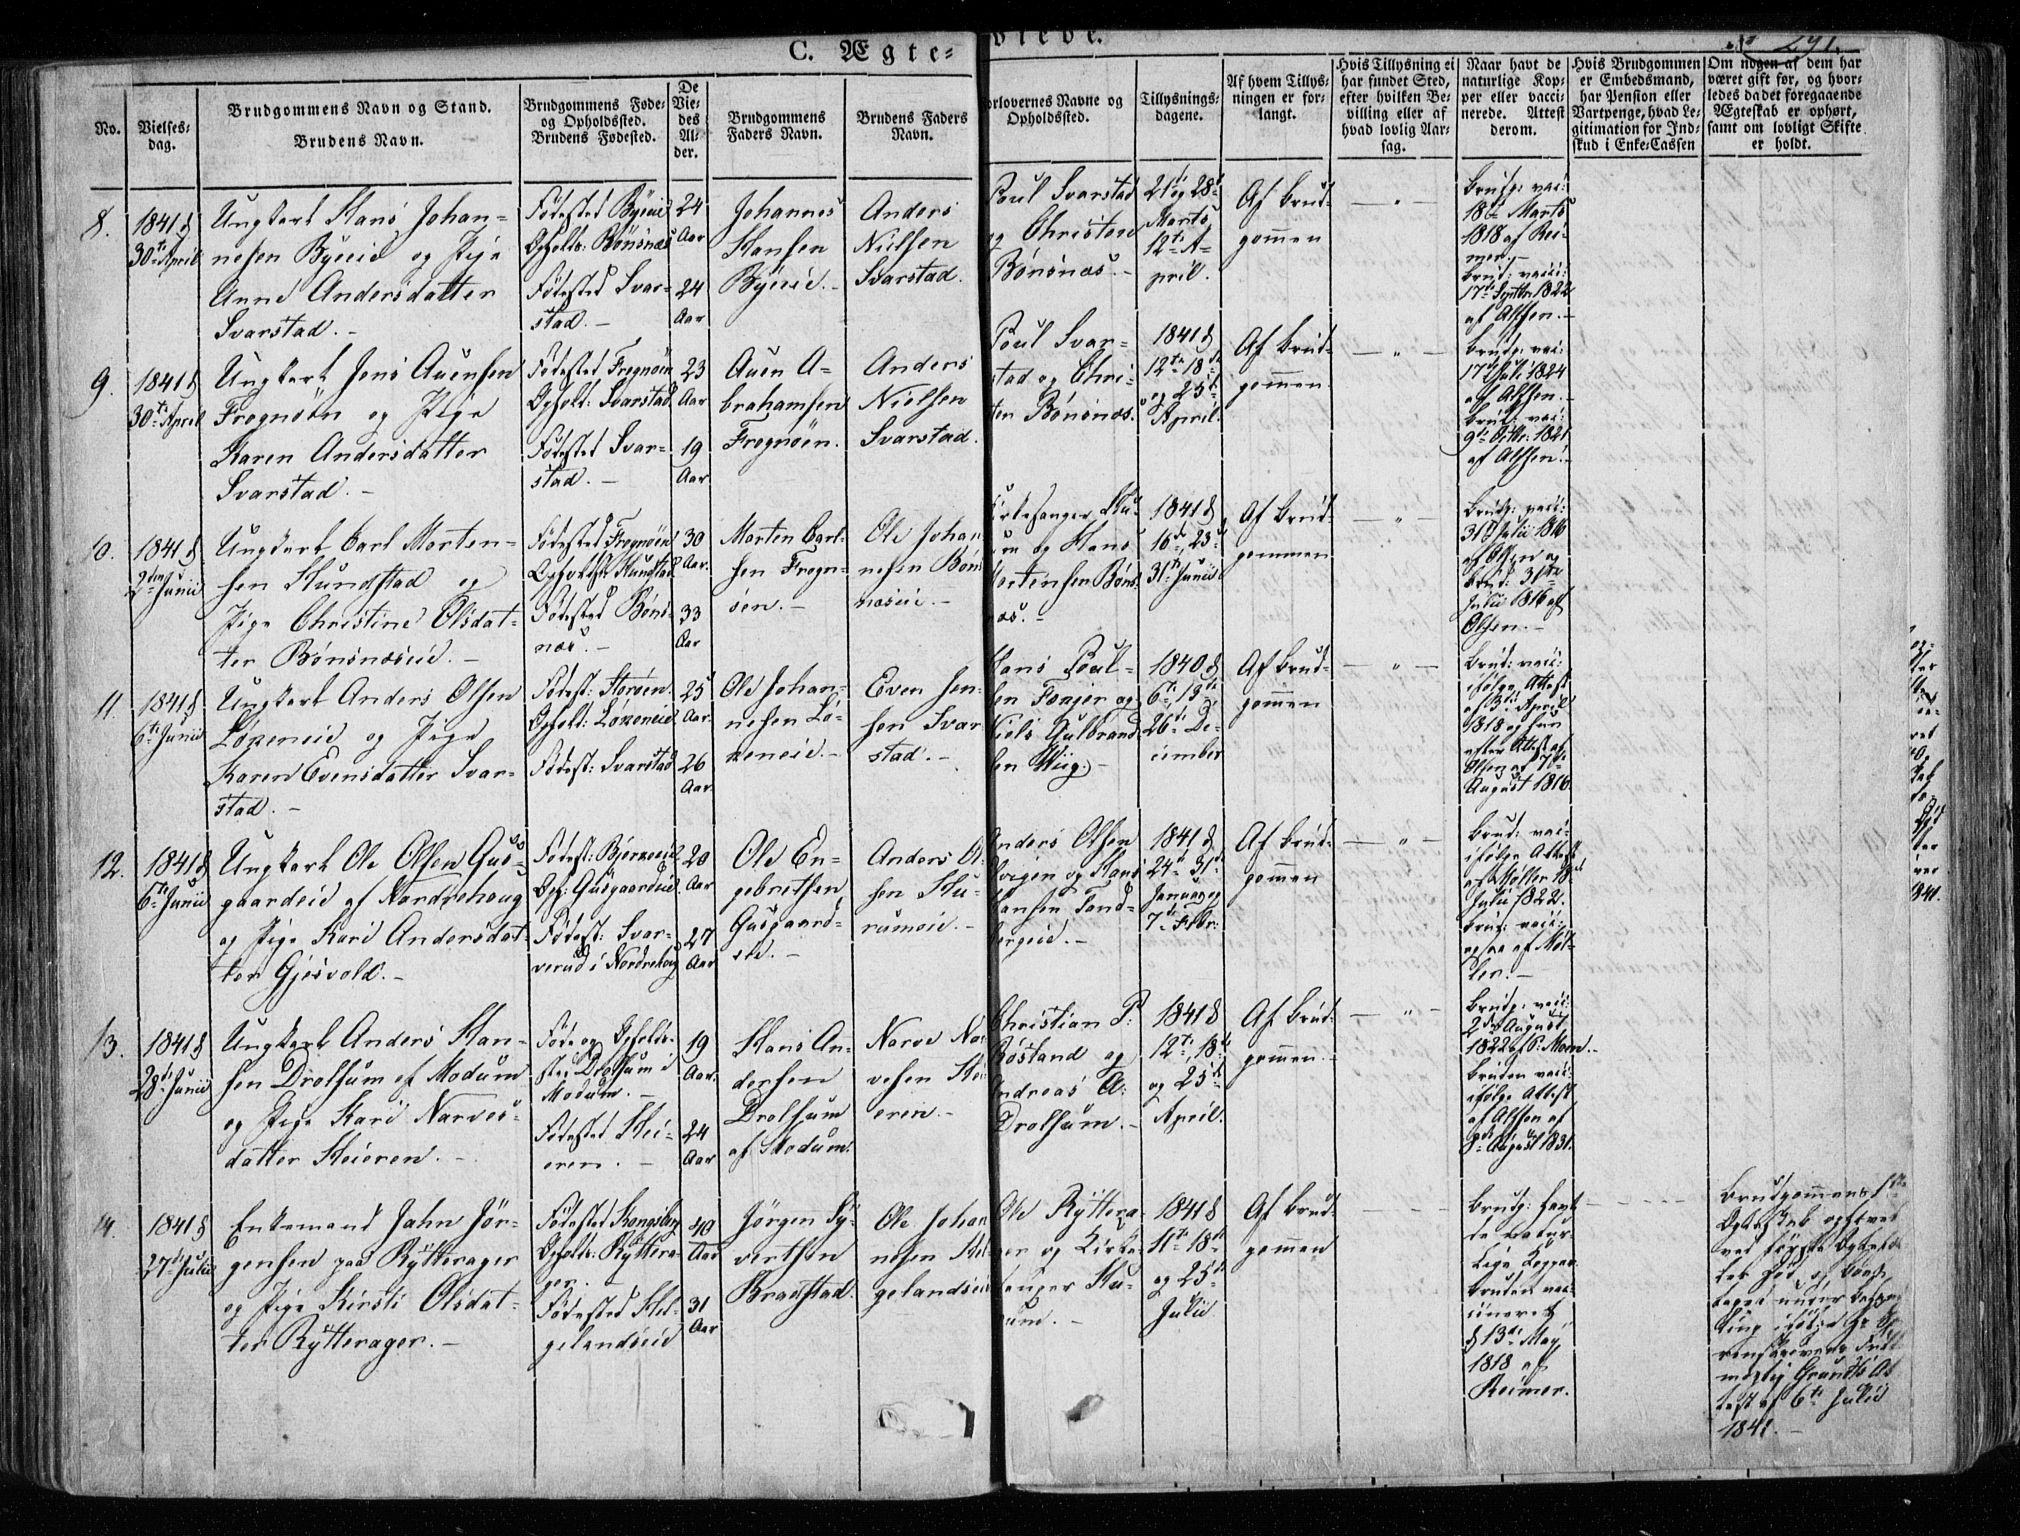 C. Ægte=
vievede.
291.
No.
Vielses-
dag.
Brudgommens Navn og Stand.
Brudens Navn.
Brudgommens Føde-
og Opholdssted.
Brudens Fødested.
De
Vie-
des
Al-
der.
Brudgommens
Faders Navn.
Brudens Faders
Navn.
Forlovernes Navne og
Opholdssted.
Tillysnings-
dagene.
Af hvem Tillys-
ningen er for-
langt.
Hvis Tillysning ei
har fundet Sted,
efter hvilken Be-
villing eller af
hvad lovlig Aar-
sag.
Naar havt de
naturlige Kop-
per eller vacci-
nerede. Attest
derom.
Hvis Brudgommen
er Embedsmand,
har Pension eller
Vartpenge, hvad Le-
gitimation for Ind-
skud i Enke-Cassen
Om nogen af dem har
været gift før, og hvor-
ledes da det foregaaende
Ægteskab er ophørt,
samt om lovligt Skifte
er holdt.
8.
1841 d
30te April
Ungkarl Hans Johan-
nesen Byeeie og Pige
Anne Andersdatter
Svarstad. -
Fødested Byeeie
Opholds: Bønsnæs
Fødested Svar-
stad. -
24
Aar
24
Aar
Johannes
Hansen
Byeeie. -
Anders
Nielsen
Svarstad.
Poul Svarstad
og Christen
Bønsnæs. -
21de og 28de
Marts
12te A-
pril.
Af Brud-
gommen
- " -
Brudg: vacc:
18de Marts
1818 af Rei-
mer. -
Brud: vacc:
17de Septbr 1822
af Alfsen. -
9.
1841 d
30te April
Ungkarl Jens Auensen
Frognøen og Pige
Karen Andersdatter
Svarstad. -
Fødested Frognøen
Ophold: Svarstad
Fødested Svar-
stad. -
23
Aar
19
Aar.
Auen A-
brahamsen
Frognøen.
Anders
Nielsen
Svarstad.
Poul Svar-
stad og Chri-
sten Bønsnæs.
1841 d
12te 18de
og 25de
April.
Af Brud-
gommen.
- " -
Brudg: vacc:
17de Juli 1824
af Alfsen. -
Brud: vacc:
9de Octbr: 1821
af Alfsen. -
10.
1841 d
2den Junii
Ungkarl Carl Morten-
sen Hundstad og
Pige Christine Olsdat-
ter Bønsnæseie. -
Fødested Frognøen
Opholds: Hundstad
Fødested Bøns-
næs. -
30
Aar.
33
Aar
Morten Carl-
sen Frogn-
øen. -
Ole Johan
nesen Bøns
næseie. -
Kirkesanger Hu-
rum og Hans
Mortensen Bøns-
næs. -
1841 d
16de, 23de
31te Junii
Af Brud-
gommen
- " -
Brudg: vacc:
31te Julii 1816
af Olsen og
Brud: 31te
Julii 1816 af
Olsen. -
11.
1841 d
6te Junii
Ungkarl Anders Olsen
Løxeneie og Pige
Karen Evensdatter Svar-
stad. -
Fødest: Storøen.
Ophold: Løxeneie
Fødest: Svarstad
25
Aar.
26
Aar.
Ole Johan-
nesen Lø-
xeneie. -
Even Jen-
sen Svar
stad. -
Hans Poul-
sen Fonger og
Niels Gulbrand
sen Hiig. -
1840 d
6te 13de
26de De-
cember
Af Brud-
gommen
- " -
Brud: vacc:
ifølge Attest
af 3de April
1818 og hun
efter Attest af
Olsen af 7de
August 1816.
12.
1841 d
6te Junii
Ungkarl Ole Olsen Gus-
gaardeie af Nordrehoug
og Pige Kari Andersdat-
ter Gjesvold. -
Fødest: Bjerkeeie
Oph: Gusgaardeie
Fødest: Svar-
verud i Nordrehoug
20
Aar
27
Aar
Ole En-
gebretsen
Gusgaard-
eie. -
Anders Ol
sen Hu-
rumeie. -
Anders Olsen
og Hans
Hansen Tand-
bergeie. -
1841 d
24de 31te
Januar og
7de Febr:
Af Brud-
gommen
- " -
Brud: vacc:
ifølge Attest
af Møller 18de
Julii 1822.
Brud: vacc:
ogsaa af Møl-
ler. -
13.
1841 d
28de Junii
Ungkarl Anders Han-
sen Drolsum af Modum
og Pige Kari Narves-
datter Heieren. -
Føde og Opholds-
sted Drolsum i
Modum. -
Fødested Hei-
eren. -
19
Aar.
24
Aar
Hans An-
dersen
Drolsum
af Modum.
Narve Nar
vesen Hei-
eren. -
Christian P:
Røsland og
Andreas A:
Drolsum. -
1841 d
12te, 18de
og 25de
April.
Af Brud-
gommen. -
- " -
Brudg: vacc:
2den August
1822 af P: Moen. -
Bruden vacc:
ifølge Attest
af Alfsen af
8de August 1831.
14.
1841 d
27de Julii
Enkemand John Jør-
gensen paa Rytterager
og Pige Kirsti Olsdat-
ter Rytterager. -
Fødested Kongsberg
Opholds: Ryttera-
ger. -
Fødested Hel-
gelandseie
40
Aar
31
Aar
Jørgen Sy-
vertsen
Braastad.
Ole Johan
nesen Hel-
gelandseie
Ole Ryttera-
ger og Kirke-
sanger Hu-
rum. -
1841 d
11te 18de
og 25de
Julii
Af Brud-
gommen
Brudg: havt
de natur-
lige Kopper
Bruden vac-
cineret
d 13de May
1818 af
Reimer.
Brudgommens 1ste
Ægteskab ophævet
ved forrige Ægtefæl-
les Død og Boet
taget under Behand-
ling ifølge
mægtig At
test af 6te Julii
1841. -